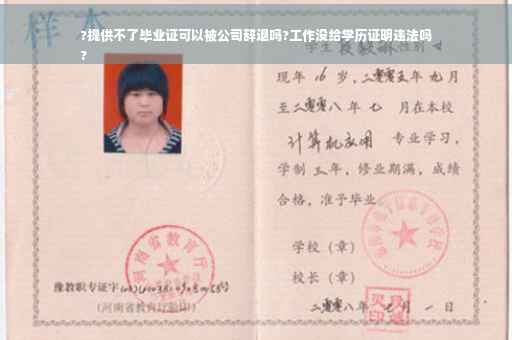 样本
?提供不了毕业证可以被公司辞退吗?工作没给学历证明违法吗
?
学生
性别
现年 16 岁，二零零五年 九月
至二零零八年 七 月在本校
计算机应用 专业学习，
学制 三 年，修业期满，成绩
合格，准予毕业
学校（章）
校长（章）
二零零八年 七 月 一 日
河南省教育厅
豫教职专证字
（河南省教育厅验印）